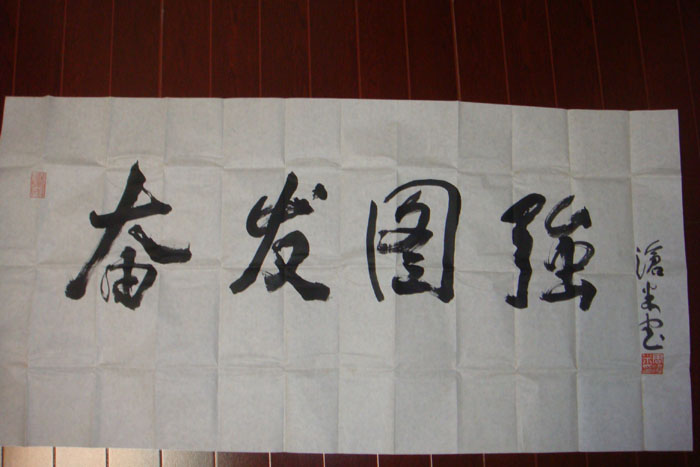 奋发图强